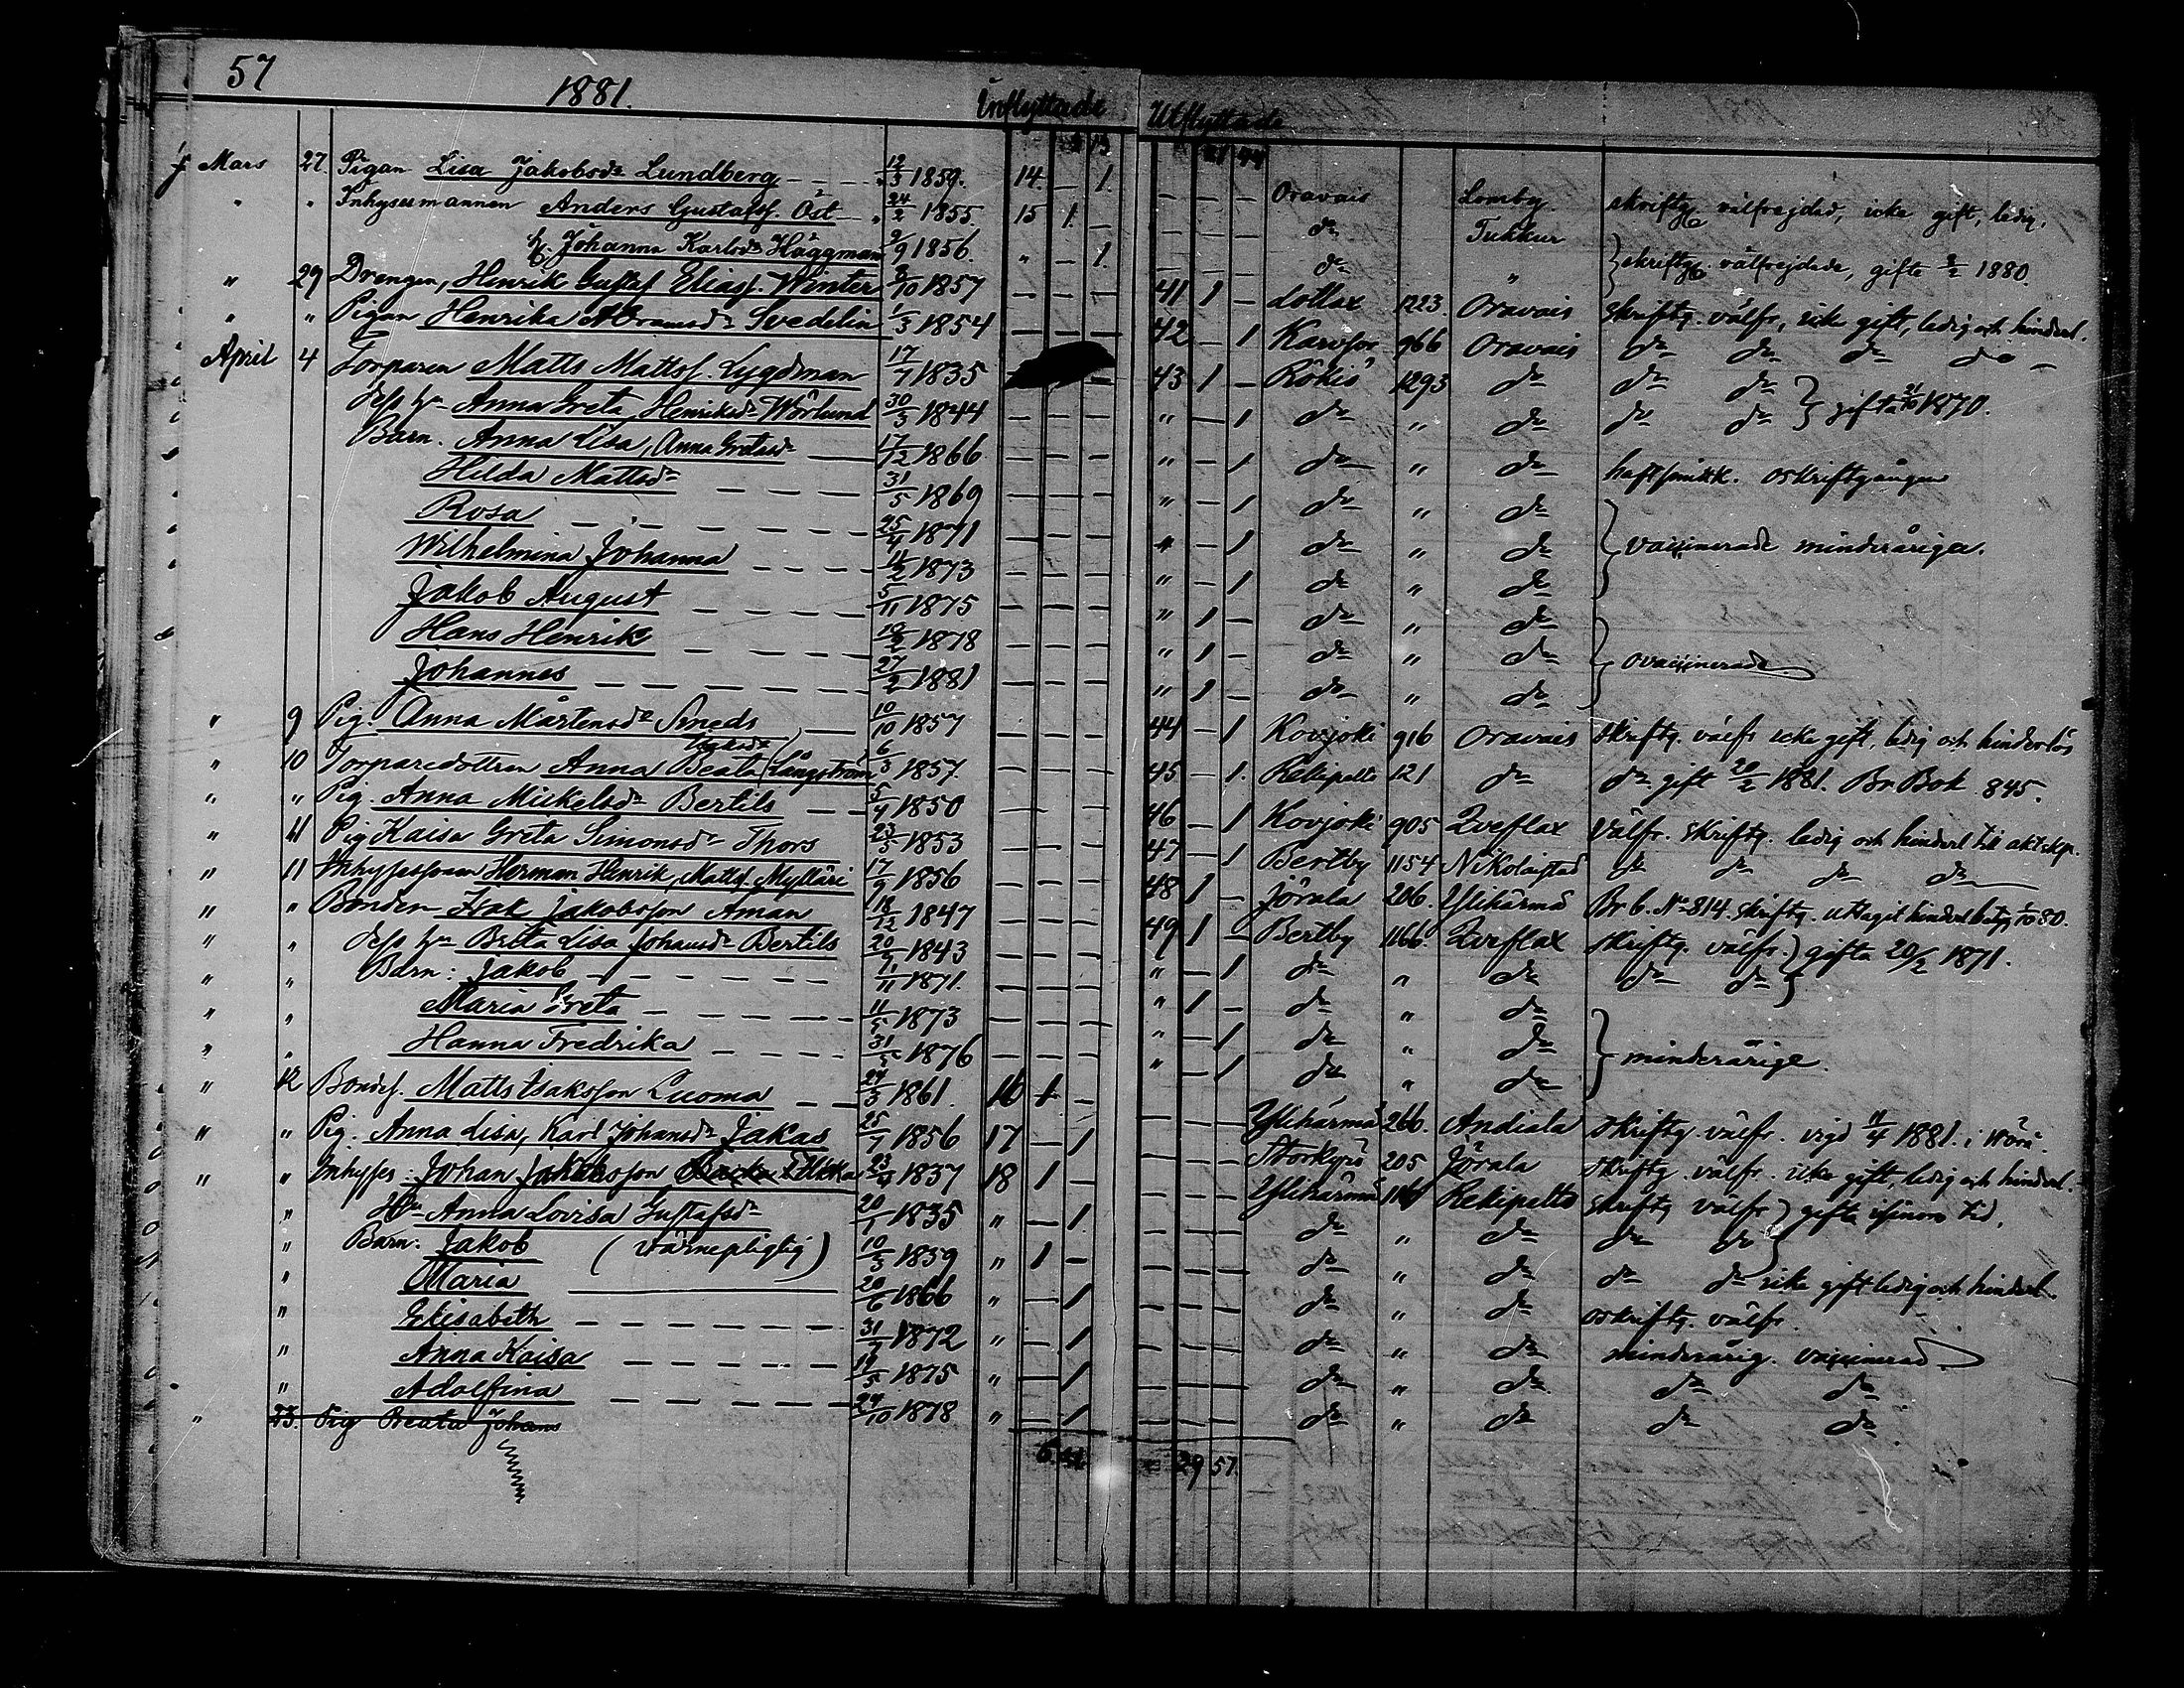 57 1881. Inflyttade Utflyttade
Mars 27. Pigan Lisa Jakobsdr Lundberg 12/3 1859. 14. — 1. — — — Oravais Lomby skriftg välfrejdad, icke gift, ledig.
" " Inhysesmannen Anders Gustafss. Öst 24/2 1855 15 1. — — — — do Tukkur
H. Johanna Karlsdr Häggman 2/9 1856. " — 1. — — — do " } skriftg. välfrejdade, gifte 8/2 1880.
" 29 Drengen, Henrik Gustaf Eliass. Winter 8/10 1857 — — — 41 1 — Lotlax 1223. Oravais skriftg. välfr, icke gift, ledig och hinderl.
" " Pigan Henrika Abramsdr Svedelin 1/3 1854 — — — 42 — 1 Karvsor 966 Oravais do do do do
April 4 Torparen Matts Mattss. Lygdman 17/7 1835 — 43 1 — Rökiö 1293 do do do } gifta 21/10 1870.
dess hu Anna Greta Henriksdr Wörlund 30/3 1844 — — — " — 1 do " do do do
Barn. Anna Lisa, Anna Gretasdr 17/12 1866 — — — " — 1 do " do haft smittk. oskriftgången
Hilda Mattsdr 31/5 1869 — — — " — 1 do " do
Rosa 25/4 1871 — — — " — 1 do " do } vaccinerade minderåriga.
Wilhelmina Johanna 11/2 1873 — — — " — 1 do " do
Jakob August 5/11 1875 — — — " 1 — do " do
Hans Henrik 19/2 1878 — — — " 1 — do " do } ovaccinerade
Johannes 27/2 1881 — — — " 1 — do " do
" 9 Pig. Anna Mårtensdr Smeds 10/10 1857 — — — 44 — 1 Kovjoki 916 Oravais skriftg. välfr icke gift, ledig och hinderlös
" 10 Torparedottren Anna Beata Långström 6/3 1857. — — — 45 — 1. Rekipelto 121 do do gift 20/2 1881. Br. Bok 845.
" " Pig. Anna Mickelsdr Bertils 5/4 1850 — — 46 — 1 Kovjoki 905 Qveflax Välfr. skriftg. ledig och hinderl till äktskp.
" 11 Pig Kaisa Greta Simonsdr Thors 23/5 1853 — — — 47 — 1 Bertby 1154 Nikolaistad do do do do
" 11 Inhyssessonen Herman Henrik Mattss. Mylläri 17/9 1856 — — — 48 1 — Jörala 206. Ylihärmä Br b. No 814. skriftg. uttagit hinderl betyg 1/10 80.
" " Bonden Isak Jakobsson Aman 18/12 1847 — — — 49 1 — Bertby 1166. Qveflax skriftg. välfr. } gifta 20/2 1871.
" " dess hu Brita Lisa Johansdr Bertils 20/9 1843 — — — " — 1 do " do do do
" " Barn: Jakob 1/11 1871. — — — " 1 — do " do
" " Maria Greta 11/5 1873 — — — " — 1 do " do } minderårige.
" " Hanna Fredrika 31/5 1876 — — — " — 1 do " do
" 12 Bondes. Matts Isaksson Luoma 24/3 1861. 16 1 — — — — Ylihärmä 266. Andiala skriftg välfr. vigd 11/4 1881. i Vörå.
" " Pig. Anna Lisa, Karl Johansdr Jakas 25/7 1856 17 — 1 — — — Storkyro 205 Jörala skriftg. välfr. icke gift, ledig och hinderl.
" " Inhysses. Johan Jakobsson 23/4 1837 18 1 — — — — Ylihärmä Rekipelto skriftg välfr } gifta i sinom tid.
" Hu Anna Lovisa Gustafsdr 20/1 1835 " — 1 — — — do " do do do
" Barn. Jakob (värnepligtig) 10/3 1859 " 1 — — — — do " do do do icke gift ledig och hinderl.
" Maria 20/6 1866 " — 1 — — — do " do oskriftg. välfr.
" Elisabeth 31/7 1872 " — 1 — — — do " do minderårig. vaccinerad.
" Anna Kaisa 14/5 1875 " — 1 — — — do " do do do
" Adolfina 24/10 1878 " — 1 — — — do " do do do
" 23. Pig Beata Johans
29 57.